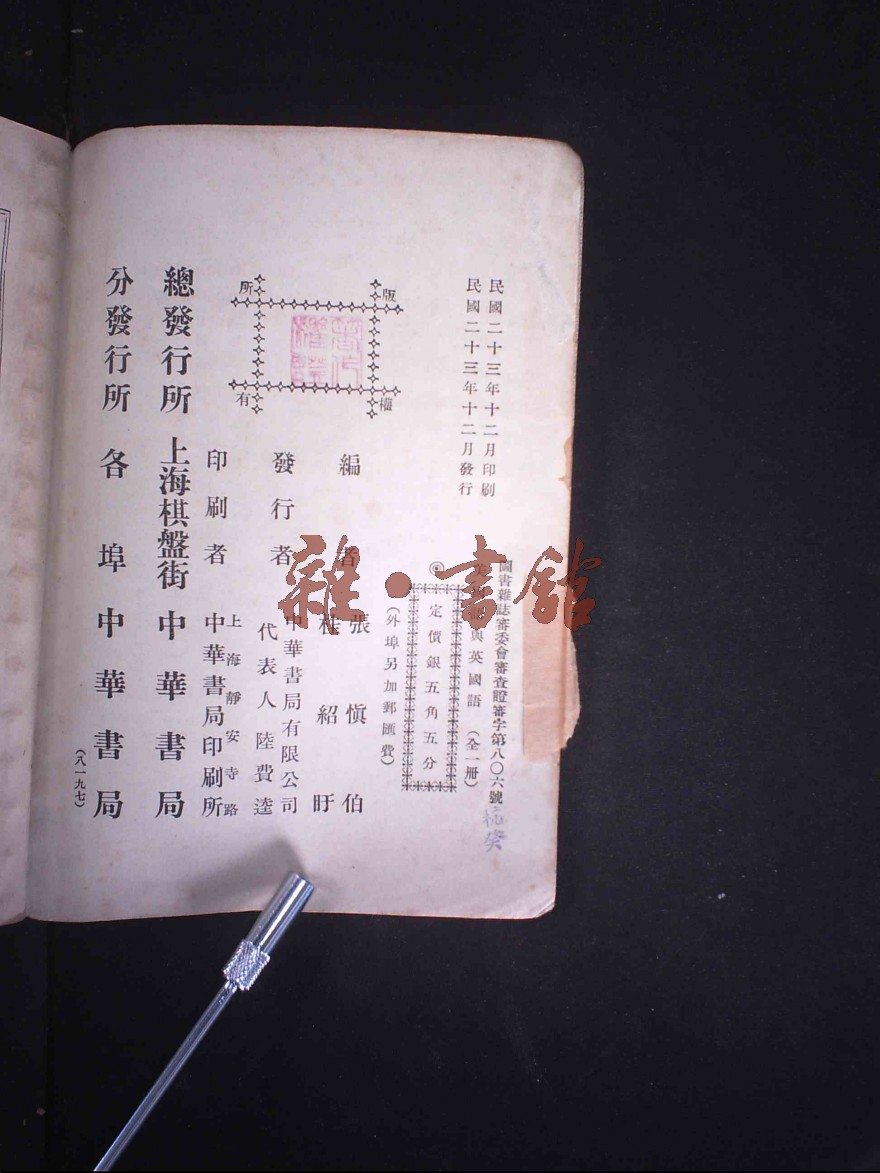 民國二十三年十二月印刷
民國二十三年十二月發行
圖書雜誌審委會審查證審字第八〇六號
與英國語(全一冊)
定價銀五角五分
(外埠另加郵匯費)
版權所有
編者 張愼伯 桂紹盱
發行者 中華書局有限公司
代表人陸費逵
印刷者 上海靜安寺路
中華書局印刷所
總發行所 上海棋盤街 中華書局
分發行所 各埠中華書局
(八一九七)
雜·書館